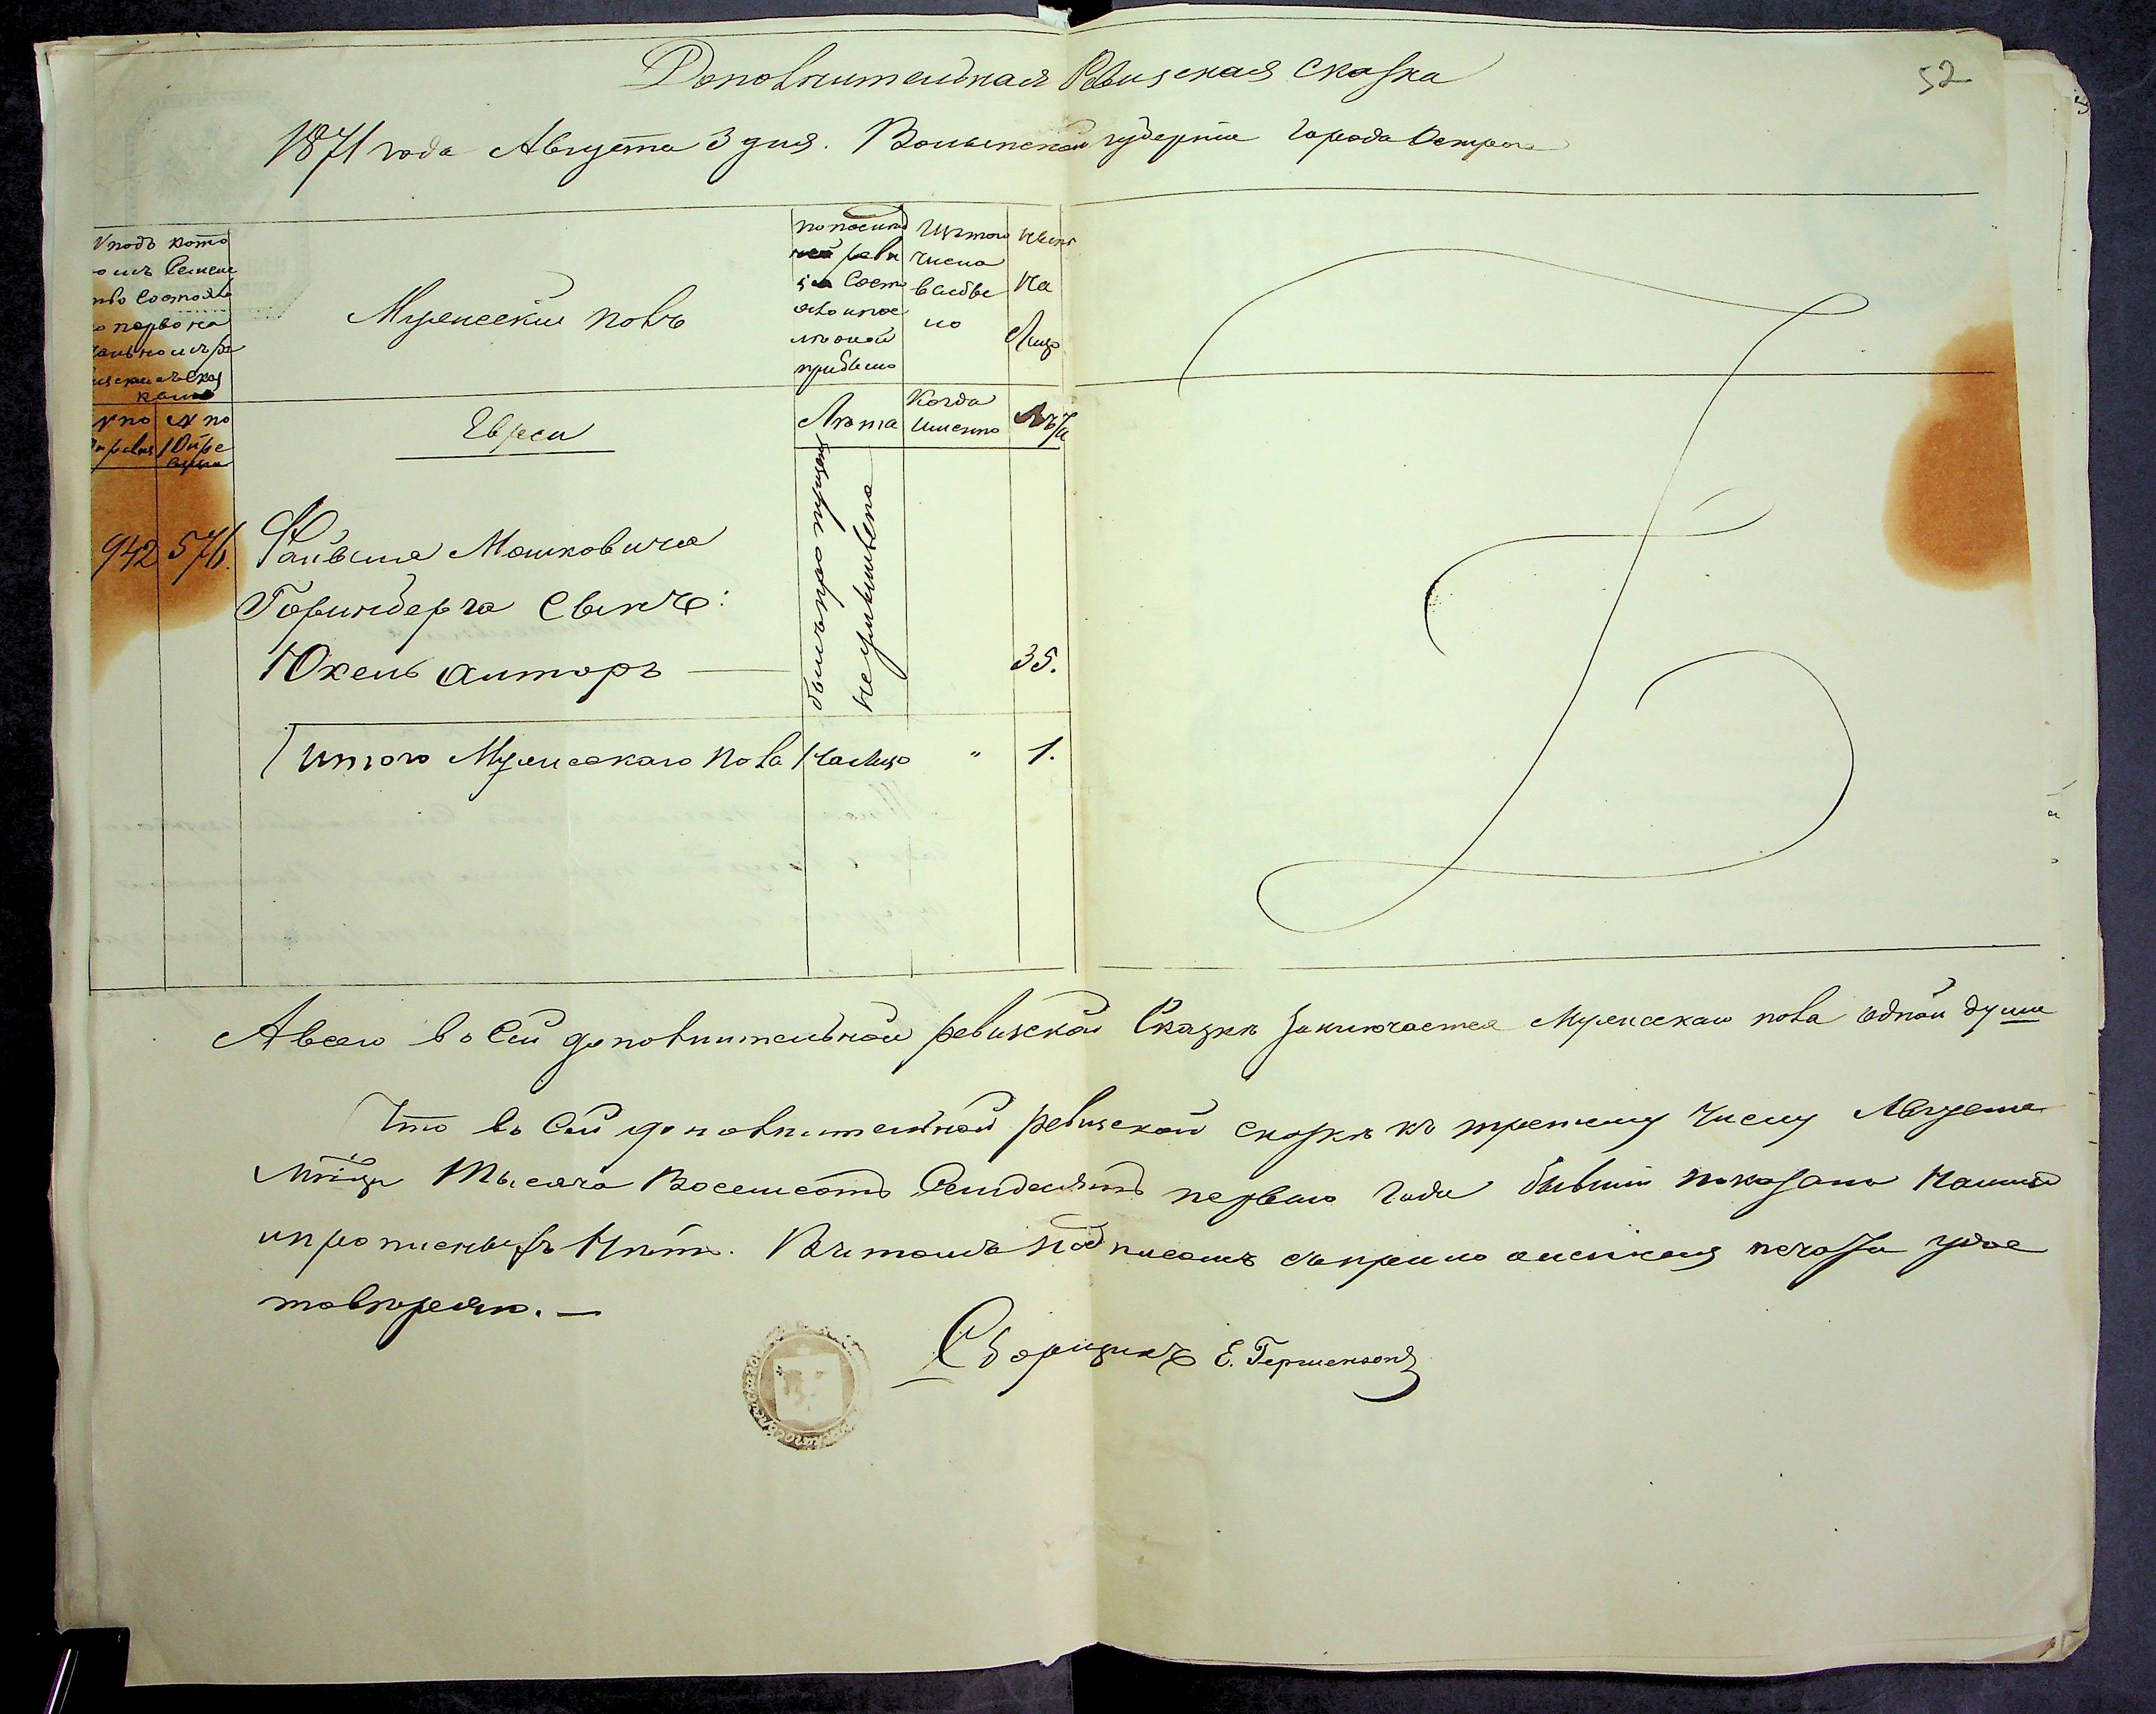 Дополнительная Ревизская Сказка
52
1871 года Августа 3 дня. Волынской губернии города Острога
№ подъ кото
омъ Семей
тво Состояло
о перво на
чальномъ ре
визкимъ Сказ
камъ
Мужескiй полъ
по послед
ней реви
зiи Сост
ояло и пос
ле оной
прибыло
Изъ того
числа
выбы
ло
ныне
На
Лицо
№ по
ревиз
№ по
10й ре
визiи
Евреи
Лета
Когда
Именно
Лета
942 576. Файвиша Мошковича
Горинберга Сынъ:
Юкель Анторъ — 35.
былъ пропущенъ
не умышленно
Итого Мужескаго пола На лицо " 1.
А всего в о Сей дополнительной ревизской Сказке заключается Мужескаго пола одной души
Что во Сей дополнительной ревизской сказке къ третему Числу Августа
Мца Тысяча Восемсотъ Семдесятъ первого Года бывшiй показанъ
и прописныхъ Нетъ. Въ томъ подписомъ съ приложенiемъ печати удос
товеряю. —
Сборщикъ Е. Гершензонъ